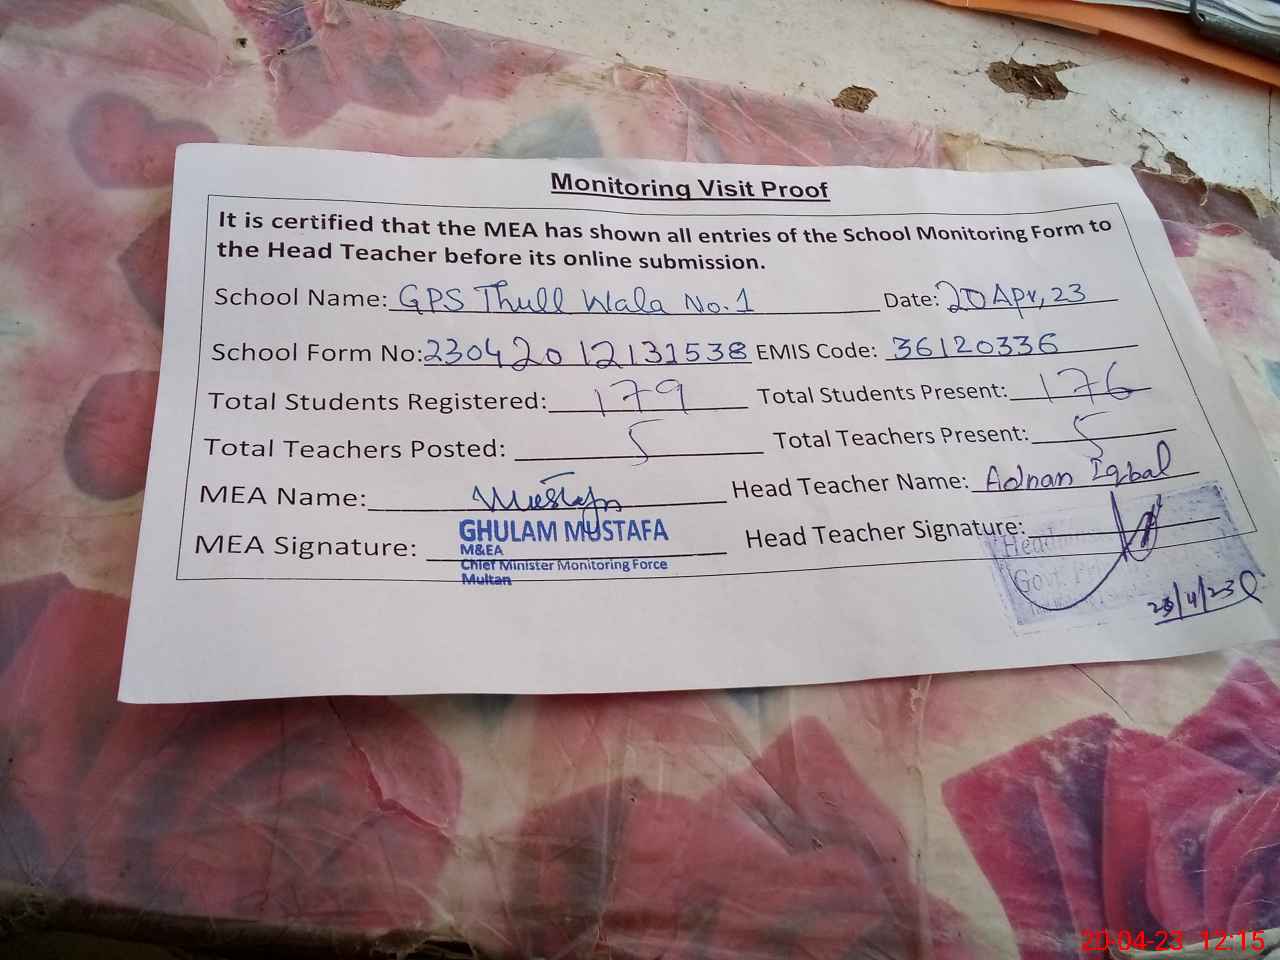 Monitoring Visit Proof
It is certified that the MEA has shown all entries of the School Monitoring Form to
the Head Teacher before its online submission.
School Name: GPS Thull Wala No.1 Date: 20 Apr, 23
School Form No: 2304201213 1538 EMIS Code: 36120336
Total Students Registered: 179 Total Students Present: 176
Total Teachers Posted: 5 Total Teachers Present: 5
MEA Name: Mustafa Head Teacher Name: Adnan Iqbal
MEA Signature: Head Teacher Signature:
GHULAM MUSTAFA
M&EA
Chief Minister Monitoring Force
Multan
Govt.
20-04-23 12:15